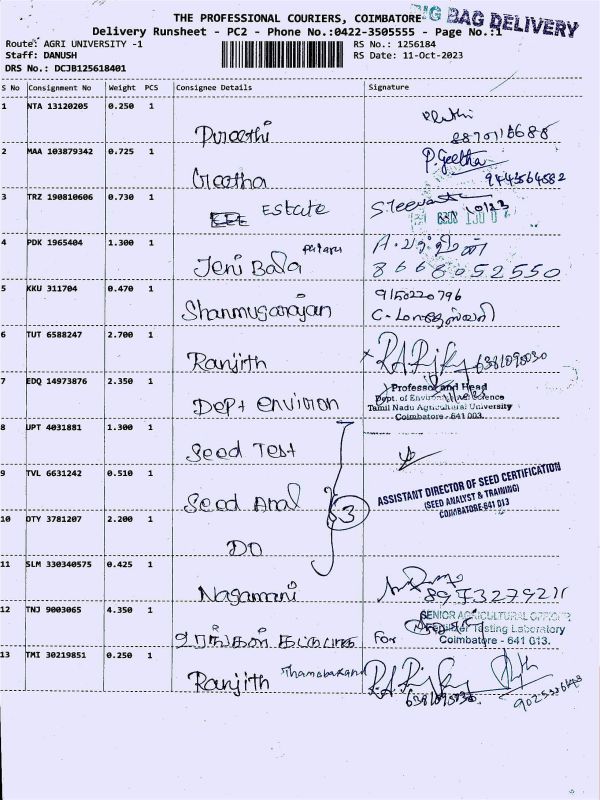 THE PROFESSIONAL COURIERS, COIMBATORE
BIG BAG DELIVERY
Delivery Runsheet - PC2 - Phone No.:0422-3505555 - Page No.:1
Route: AGRI UNIVERSITY -1
RS No.: 1256184
Staff: DANUSH
RS Date: 11-Oct-2023
DRS No.: DCJB125618401
S No Consignment No Weight PCS Consignee Details Signature
1 NTA 13120205 0.250 1
8870116688
2 MAA 103879342 0.725 1 Geetha P. Geetha
9443564582
3 TRZ 190810606 0.730 1 Estate
4 PDK 1965404 1.300 1 Jeni Bala
8668052550
5 KKU 311704 0.470 1 Shanmugarajan 9150220796
6 TUT 6588247 2.700 1 Ranjith
7 EDQ 14973876 2.350 1 Dept environ
Professor and Head
Dept. of Environmental Science
Tamil Nadu Agricultural University
Coimbatore - 641 003.
8 UPT 4031881 1.300 1 Seed Test
9 TVL 6631242 0.510 1 Seed Anal
3
ASSISTANT DIRECTOR OF SEED CERTIFICATION
(SEED ANALYST & TRAINING)
COIMBATORE-641 013
10 OTY 3781207 2.200 1 DO
11 SLM 330340575 0.425 1 Nagamani
8973279211
12 TNJ 9003065 4.350 1 For
SENIOR AGRICULTURAL OFFICER
Testing Laboratory
Coimbatore - 641 013.
13 TMI 30219851 0.250 1 Ranjith